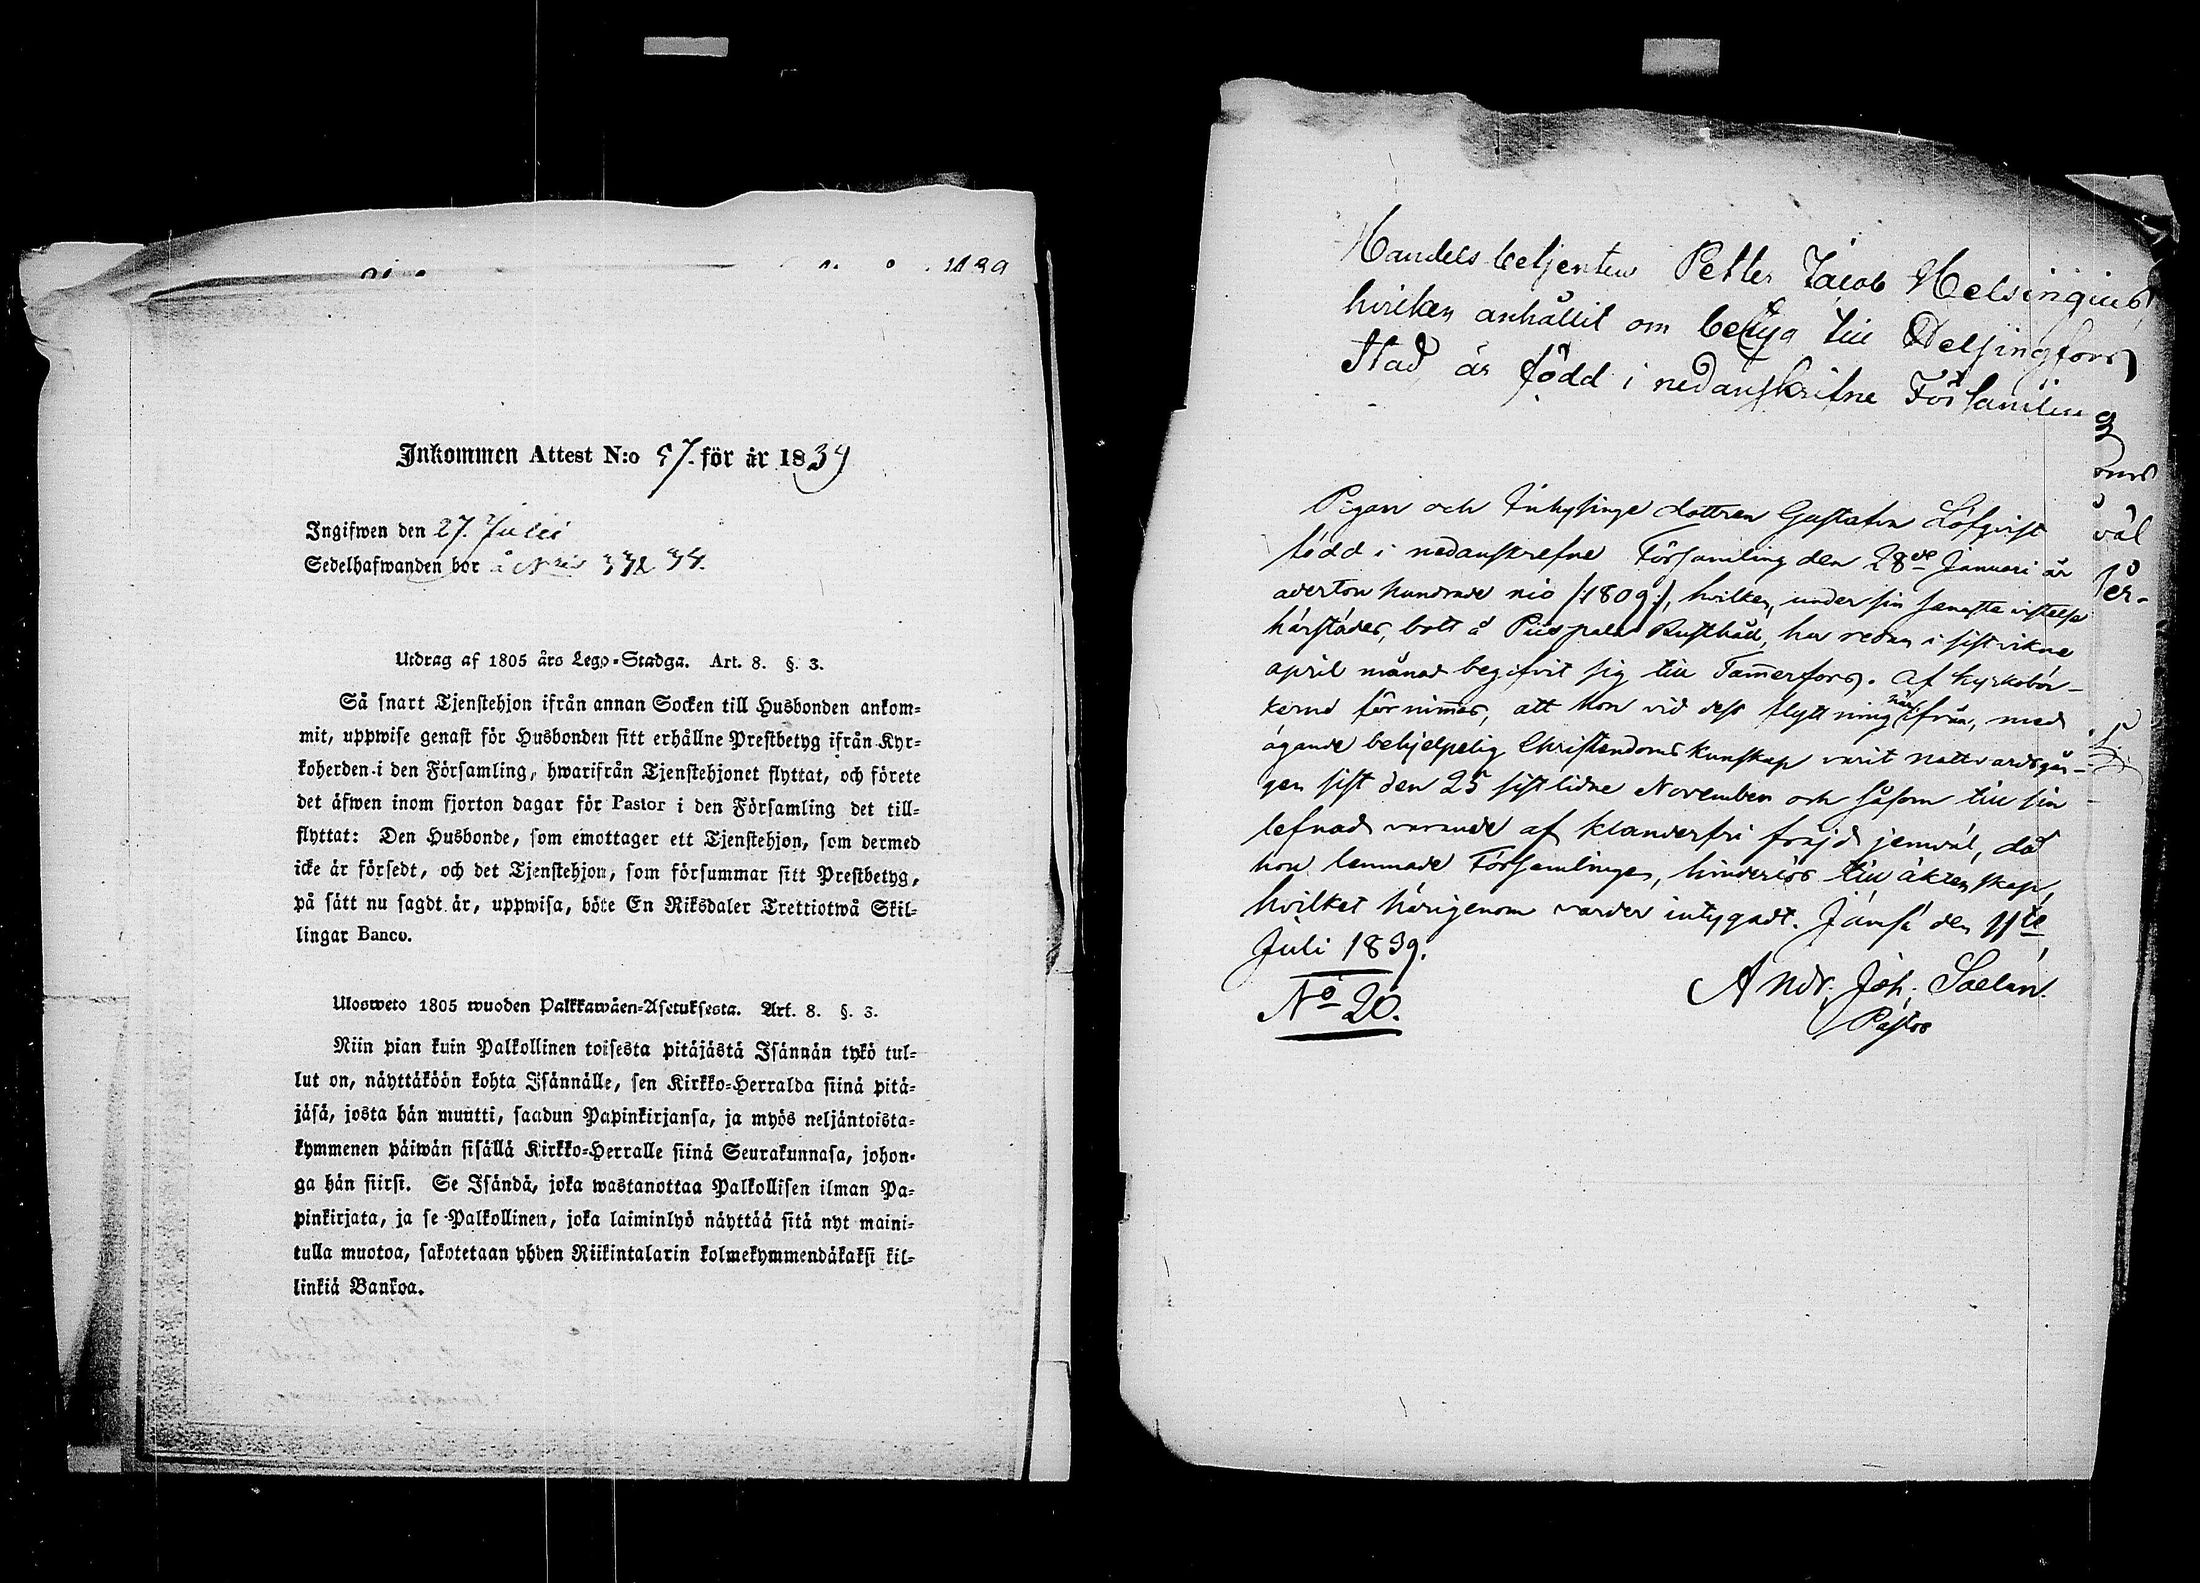 1839
Inkommen Attest N:o 57. för år 1839
Ingifwen den 27. Julii
Sedelhafwanden bor å N:ris 33 & 34.
Utdrag af 1805 års Lego-Stadga. Art. 8. §. 3.
Så snart Tjenstehjon ifrån annan Socken till Husbonden ankom-
mit, uppwise genast för Husbonden sitt erhållne Prestbetyg ifrån Kyr-
koherden i den Församling, hwarifrån Tjenstehjonet flyttat, och förete
det äfwen inom fjorton dagar för Pastor i den Församling det till-
flyttat: Den Husbonde, som emottager ett Tjenstehjon, som dermed
icke är försedt, och det Tjenstehjon, som försummar sitt Prestbetyg,
på sätt nu sagdt är, uppwisa, böte En Riksdaler Trettiotwå Skil-
lingar Banco.
Ulosweto 1805 wuoden Palkkawäen-Asetuksesta. Art. 8. §. 3.
Niin pian kuin Palkollinen toisesta pitäjästä Isännän tykö tul-
lut on, näyttäköön kohta Isännälle, sen Kirkko-Herralda siinä pitä-
jäsä, josta hän muutti, saadun Papinkirjansa, ja myös neljäntoista-
kymmenen päiwän sisällä Kirkko-Herralle siinä Seurakunnasa, johon-
ga hän siirsi. Se Isändä, joka wastanottaa Palkollisen ilman Pa-
pinkirjata, ja se Palkollinen, joka laiminlyö näyttää sitä nyt maini-
tulla muotoa, sakotetaan yhden Riikintalarin kolmekymmendäkaksi kil-
linkiä Bankoa.
Handels betjenten Petter Jacob Helsingius,
hvilken anhållit om betyg till Helsingfors
Stad är född i nedanskrifne Församling
Pigan och Inhysinge dottren Gustafva Löfqvist
född i nedanskrefne Församling den 28de Januari år
aderton hundrade nio /:1809:/, hvilken, under sin senaste vistelse
härstädes, bott å Piispala Rusthåll, har redan i sistvikne
april månad begifvit sig till Tammerfors. Af kyrkobör-
kerne förnimmes, att hon vid dess flyttning härifrån, med
ägande behjelpelig Christendoms kunskap varit nattvardsgån-
gen sist den 25 sistlidne November och såsom till sin
lefnad varande af klanderfri fräjd jemväl, då
hon lemnade Församlingen, hinderlös till äktenskap,
hvilket härigenom varder intygadt. Jämsä den 11te
Juli 1839.
No 20.
Andr. Joh. Saelan.
Pastor
väl